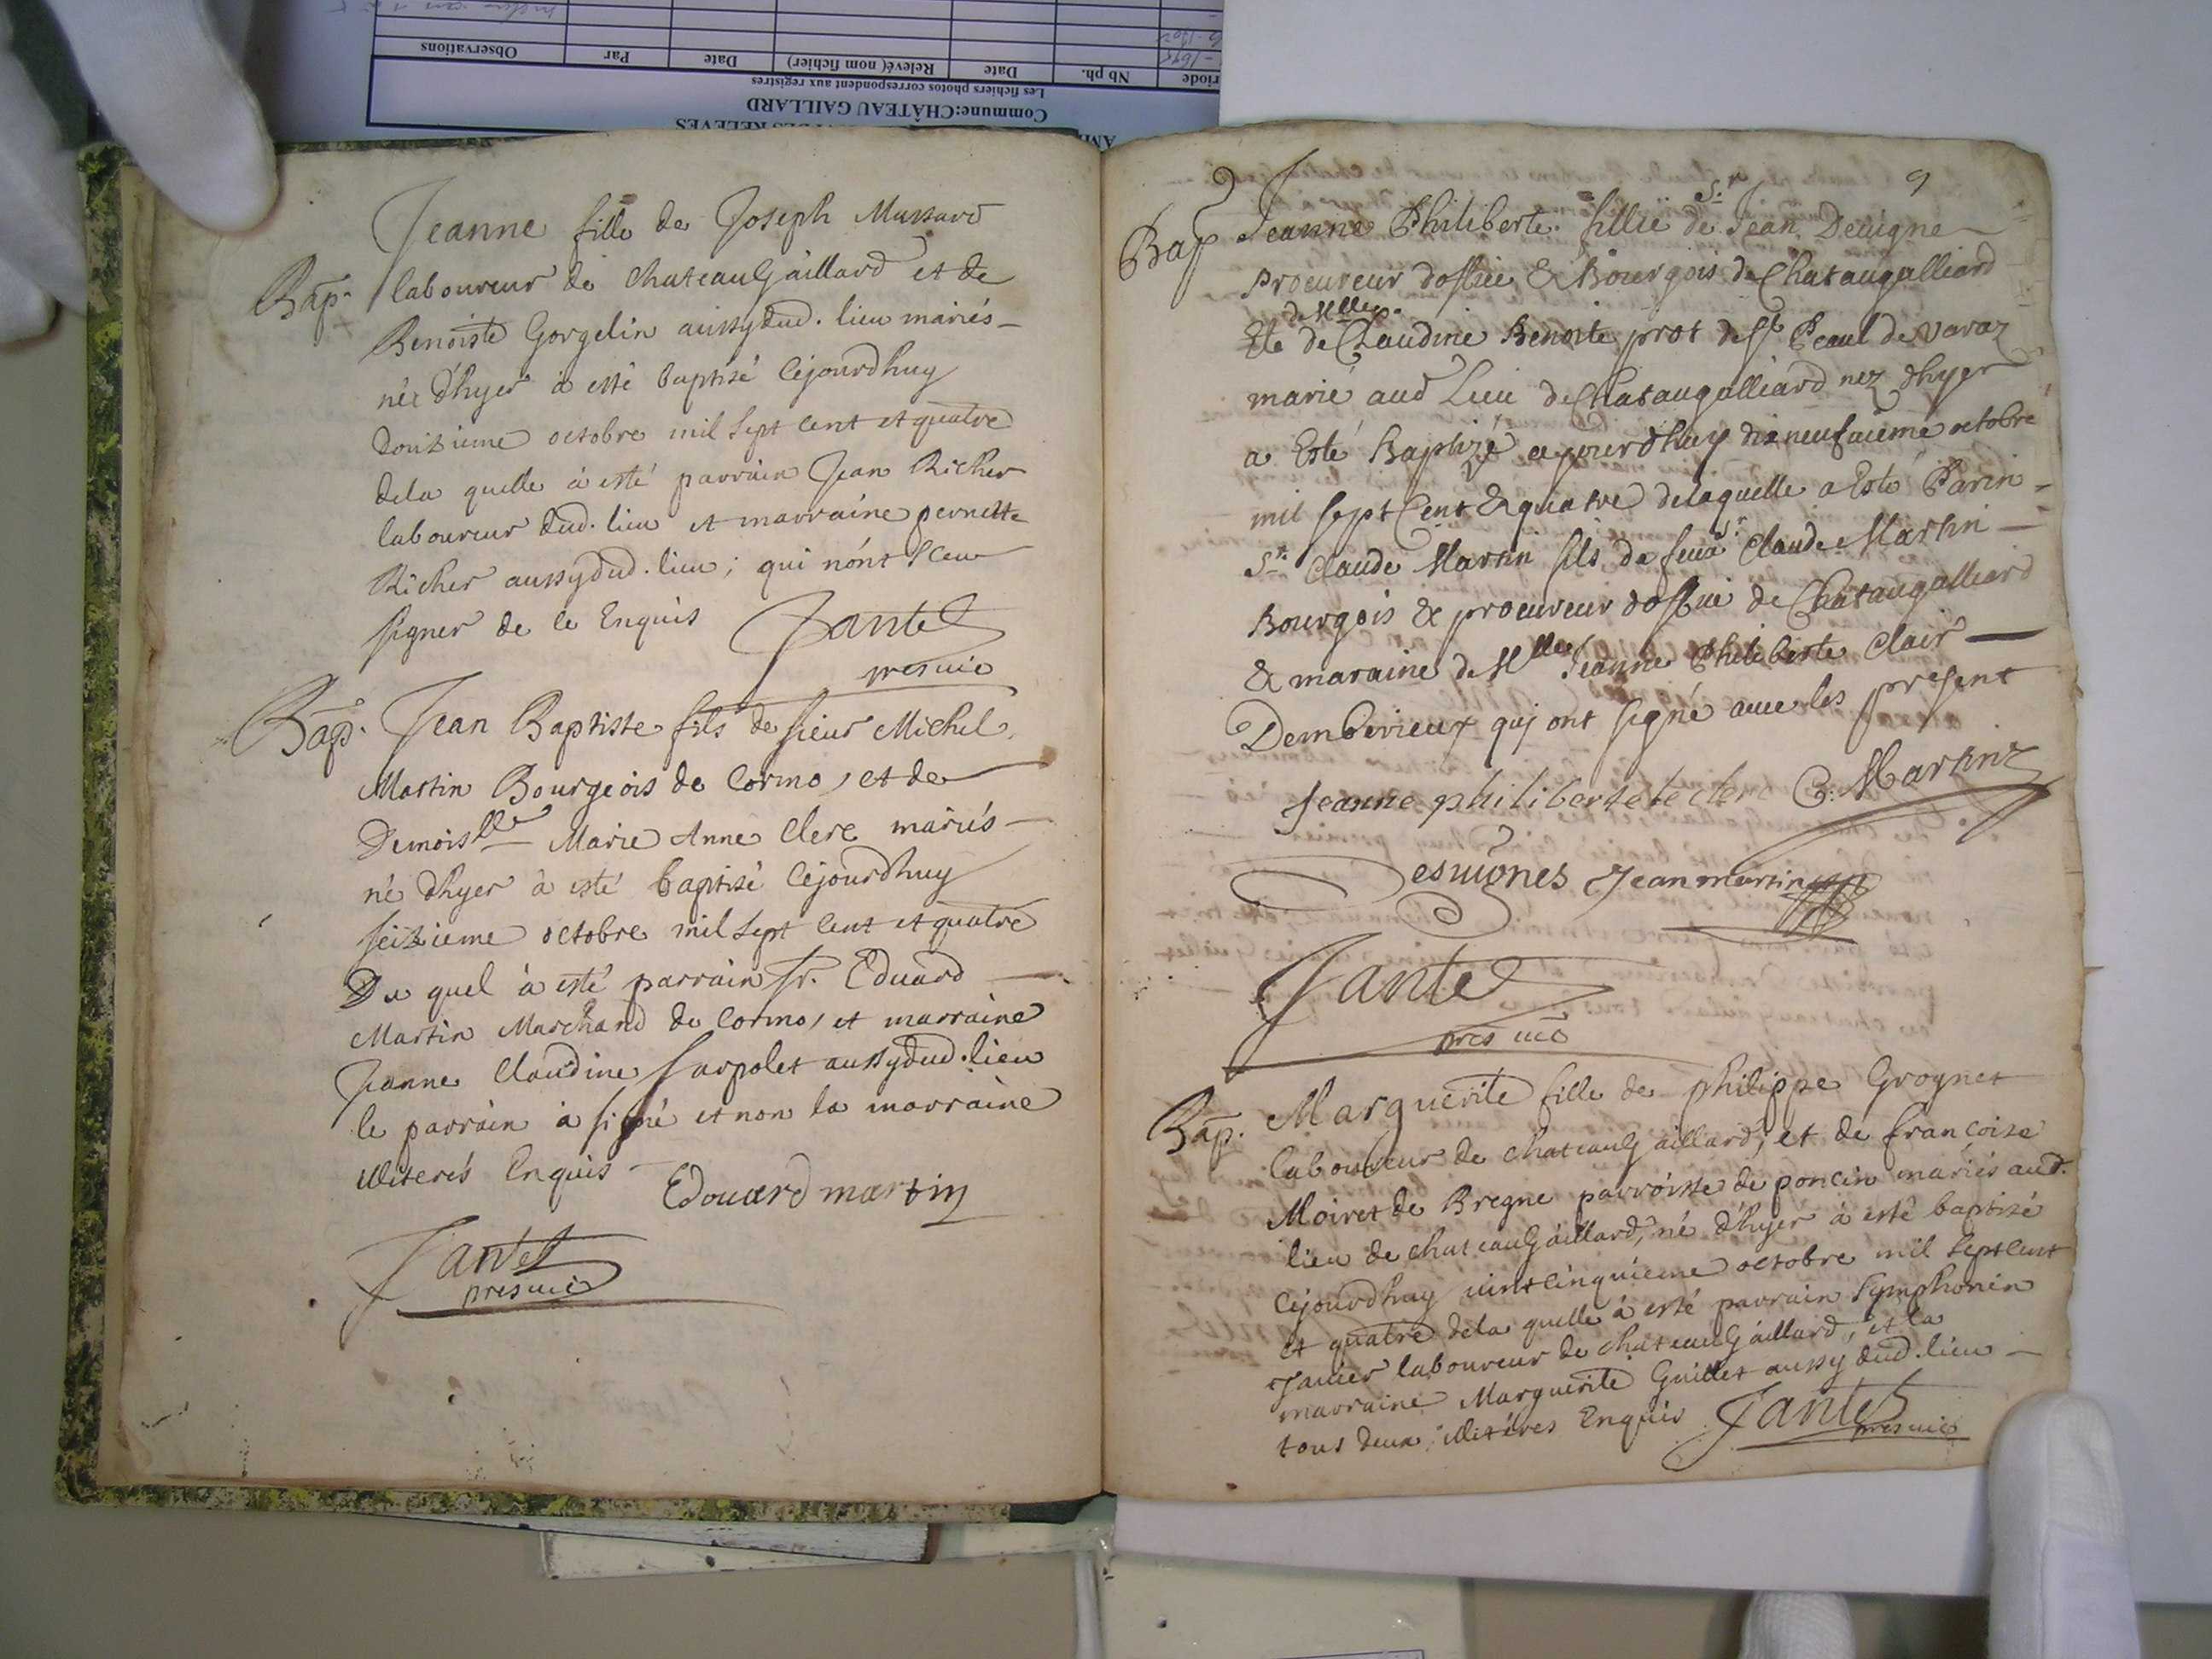 Commune:CHÂTEAU GAILLARD
Les fichiers photos correspondent aux registres
Nb ph. Date Relevé( nom fichier) Date Par Observations
Jeanne fille de Joseph Mussard
Bap. laboureur de chateauGaillard et de
Benoiste Gorgelin aussy dud. lieu mariés
née d'hyer à esté baptisé cejourdhuy
douzieme octobre mil sept cent et quatre
dela quelle à esté parrain Jean Richer
laboureur dud. lieu et marraine pernette
Richer aussy dud. lieu; qui nónt sceu
signer de ce Enquis Jantet
pres vic
Bap. Jean Baptiste fils de sieur Michel
Martin Bourgeois de Cormo, et de
Demoislle Marie Anne Clerc mariés
né dhyer à esté baptisé cejourdhuy
seizieme octobre mil sept cent et quatre
Du quel à esté parrain Sr. Eduard
Martin Marchand de Cormo, et marraine
Jeanne Claudine Sarpolet aussy dud. lieu
le parrain à signé et non la marraine
illiterés Enquis Edouard martin
Jantet
pres vic
9
Bap Jeanne Philiberte fillie de Sr Jean Deuigne
procureur dosfice & Bourgois de Chataugalliard
Ete de dlle Claudine Benoite prot de St Peaul de varaz
marié aud Lieu de Chataugalliard nez dhyer
a Esté Baptizé cejourdhuy dixneufuieme octobre
mil sept Cent & quatre delaquelle a Esté Parin
Sr. Claude Martin fils de feu Sr Claude Martin
Bourgois & procureur dosfice de Chataugalliard
& maraine de Mlle Jeanne Philiberte Clair
Demberieux quj ont signé auec les present
Jeanne philiberte le clerc C. Martin
Desuignes Jean martin
Jantet
pres vic
Bap. Marguerite fille de philippe Grognet
laboureur de chateauGaillard, et de françoise
Moiret de Bregne parroisse de poncin mariés aud.
lieu de chateauGaillard, né d'hyer à esté baptisé
cejourdhuy vintcinquieme octobre mil sept cent
et quatre dela quelle à esté parrain Symphorien
Janier laboureur de chateauGaillard, et la
marraine Marguerite Guillet aussy dud. lieu
tous deux illitéres Enquis Jantet
pres vic